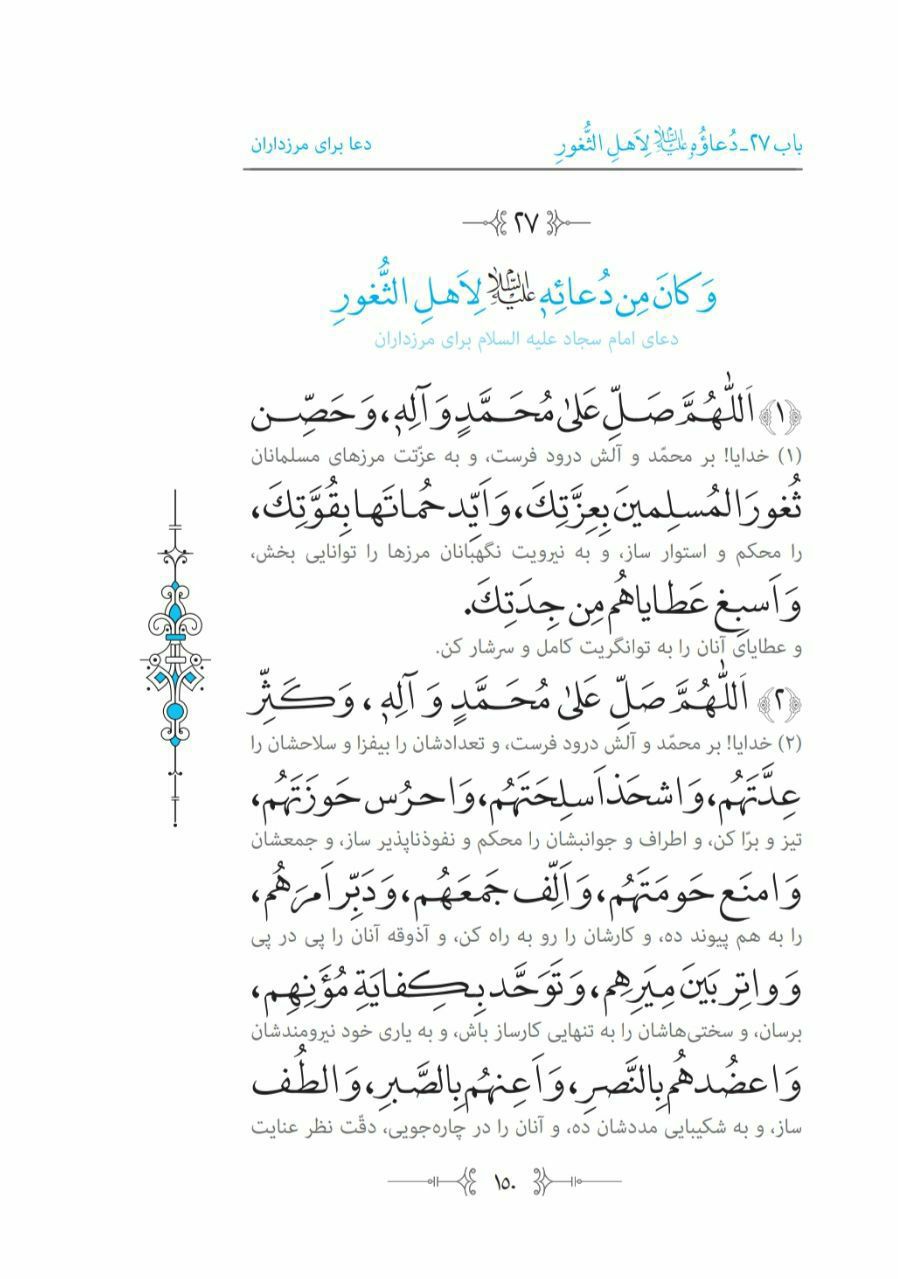 باب ۲۷ـ دُعاؤُهُ عَلَيهِ السَّلامُ لِاَهلِ الثُّغورِ
دعا برای مرزداران
۲۷
وَ كانَ مِن دُعائِهٖ عَلَيهِ السَّلامُ لِاَهلِ الثُّغورِ
دعای امام سجاد علیه السلام برای مرزداران
﴿۱﴾ اَللّٰهُمَّ صَلِّ عَلىٰ مُحَمَّدٍ وَ آلِهٖ، وَ حَصِّن
(۱) خدایا! بر محمّد و آلش درود فرست، و به عزّتت مرزهای مسلمانان
ثُغورَ المُسلِمينَ بِعِزَّتِكَ، وَ اَيِّد حُماتَها بِقُوَّتِكَ،
را محکم و استوار ساز، و به نیرویت نگهبانان مرزها را توانایی بخش،
وَ اَسبِغ عَطاياهُم مِن جِدَتِكَ.
و عطایای آنان را به توانگریت کامل و سرشار کن.
﴿۲﴾ اَللّٰهُمَّ صَلِّ عَلىٰ مُحَمَّدٍ وَ آلِهٖ، وَ كَثِّر
(۲) خدایا! بر محمّد و آلش درود فرست، و تعدادشان را بیفزا و سلاحشان را
عِدَّتَهُم، وَ اشحَذ اَسلِحَتَهُم، وَ احرُس حَوزَتَهُم،
تیز و برّا کن، و اطراف و جوانبشان را محکم و نفوذناپذیر ساز، و جمعشان
وَ امنَع حَومَتَهُم، وَ اَلِّف جَمعَهُم، وَ دَبِّر اَمرَهُم،
را به هم پیوند ده، و کارشان را رو به راه کن، و آذوقه آنان را پی در پی
وَ واتِر بَينَ مِيَرِهِم، وَ تَوَحَّد بِكِفايَةِ مُؤَنِهِم،
برسان، و سختی‌هاشان را به تنهایی کارساز باش، و به یاری خود نیرومندشان
وَ اعضُدهُم بِالنَّصرِ، وَ اَعِنهُم بِالصَّبرِ، وَ الطُف
ساز، و به شکیبایی مددشان ده، و آنان را در چاره‌جویی، دقّت نظر عنایت
۱۵۰